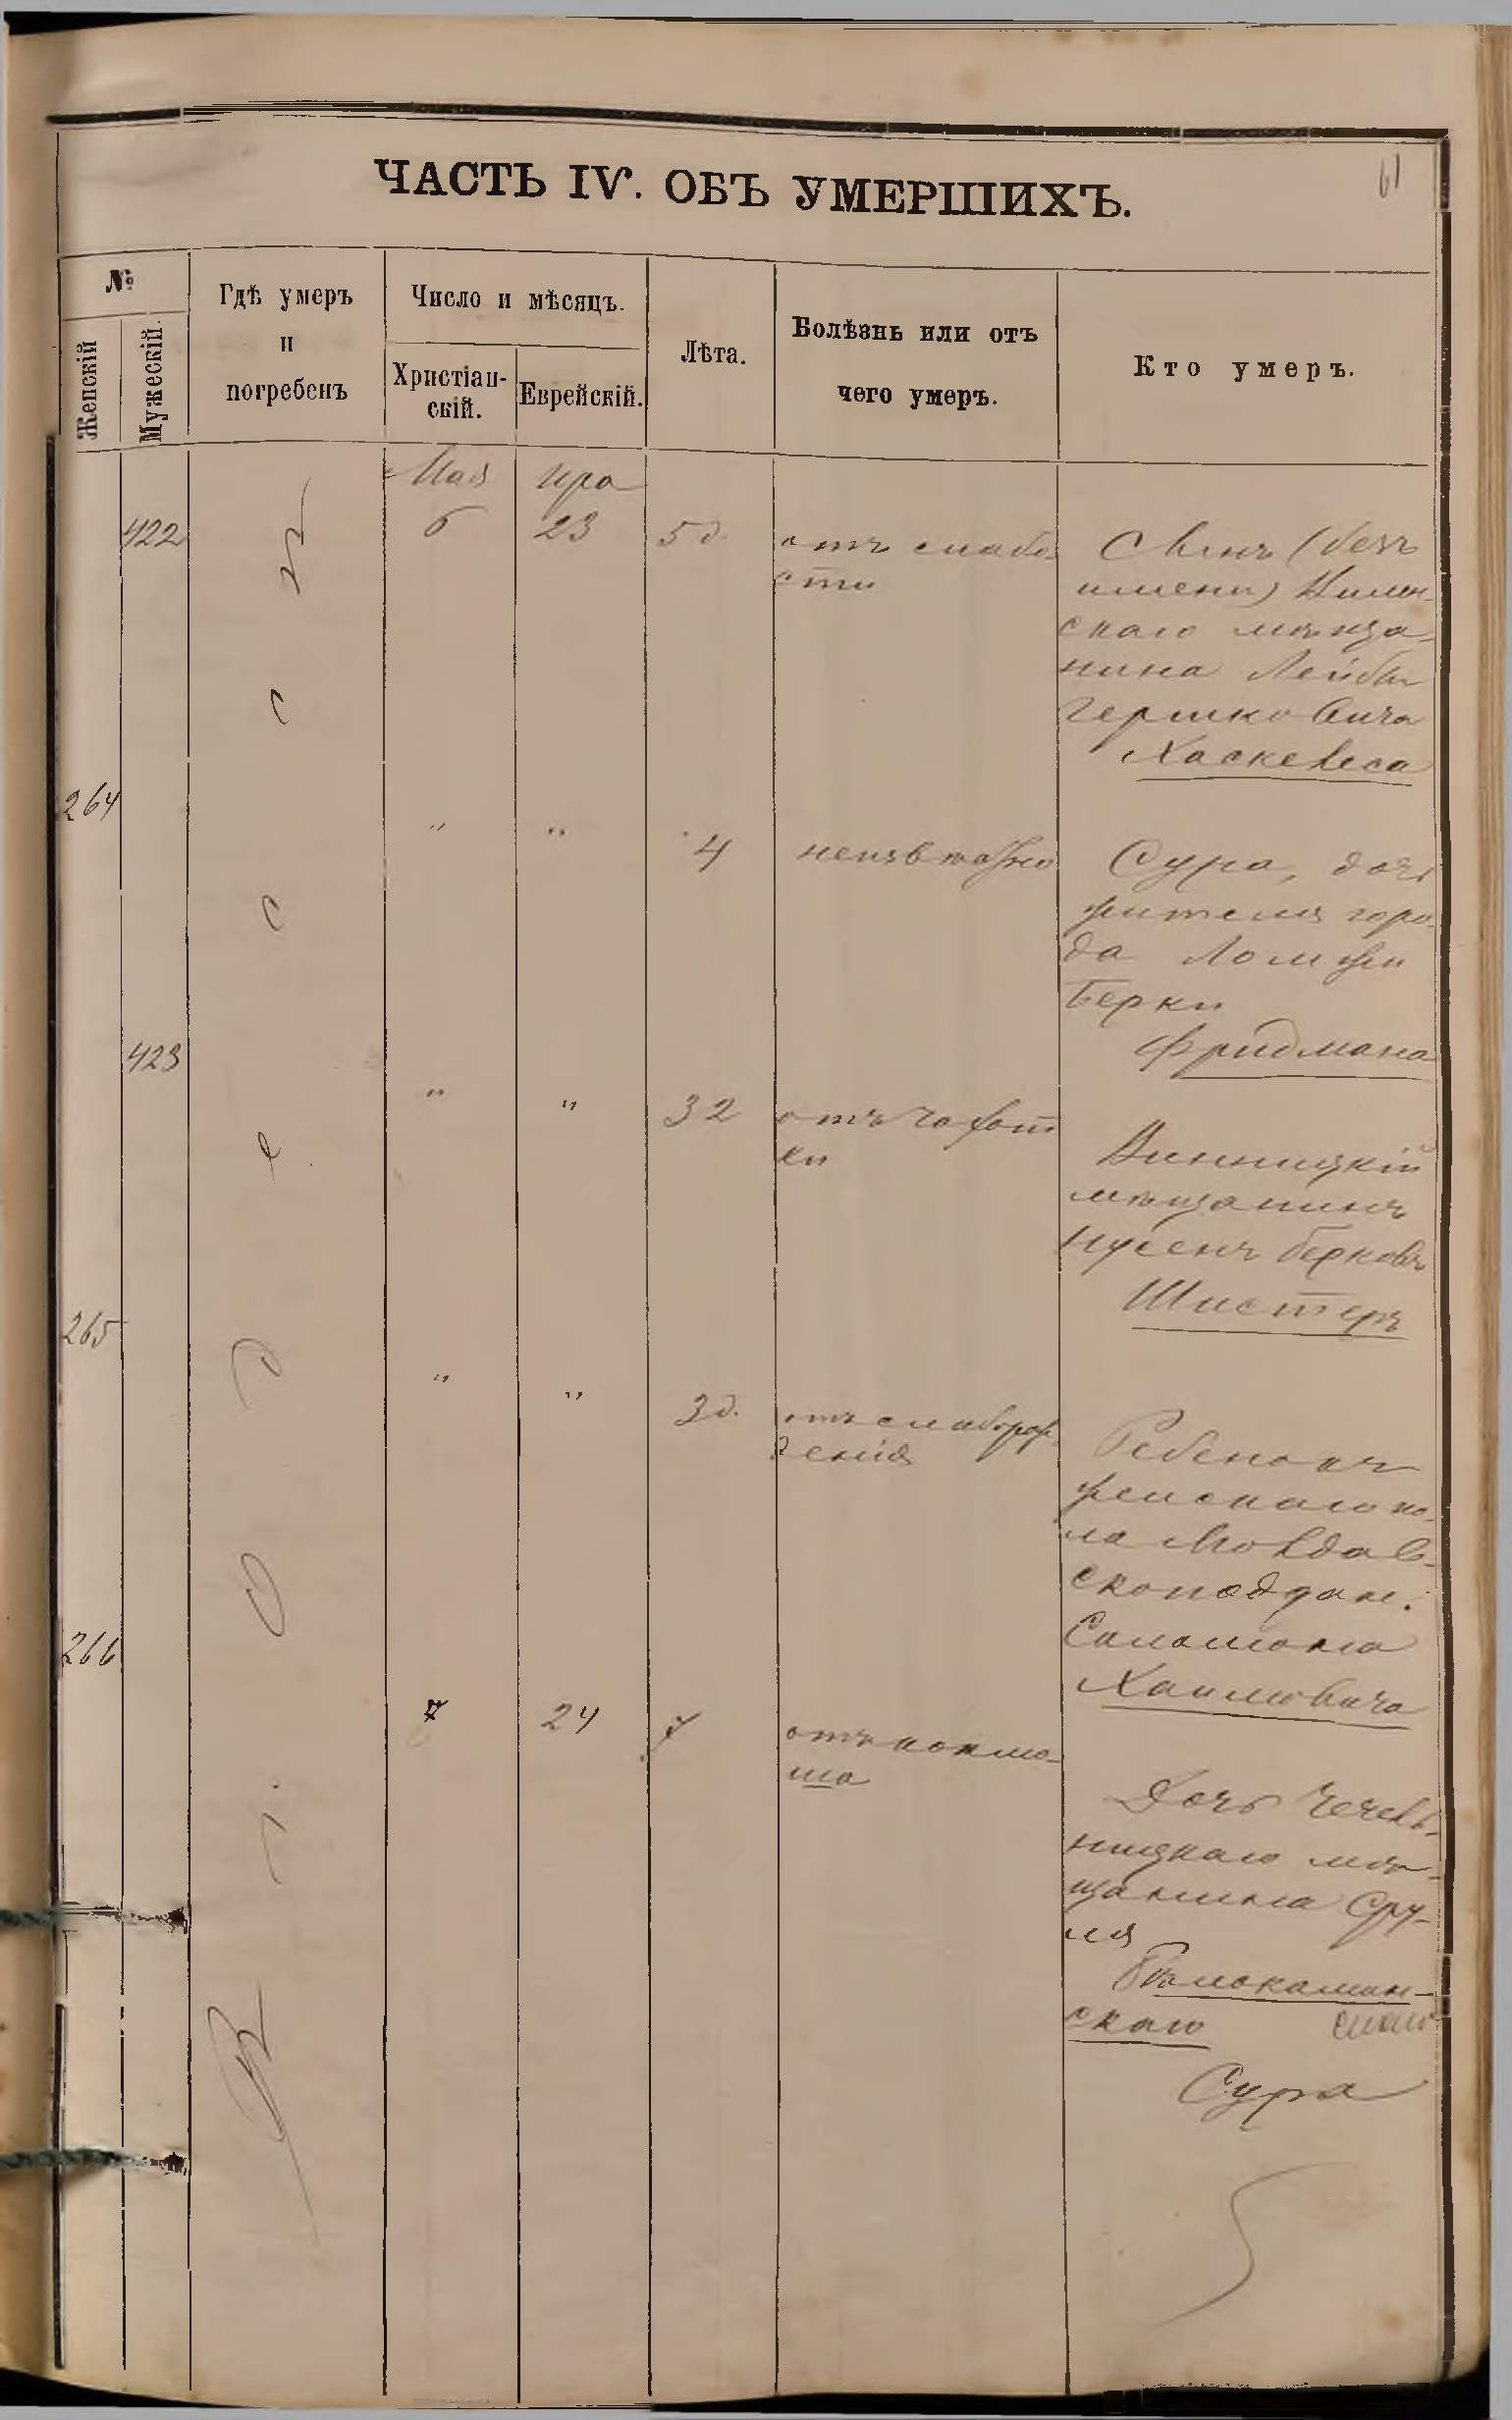 61
ЧАСТЬ IV. ОБЪ УМЕРШИХЪ.
№
Женскій
Мужескій.
Гдѣ умеръ
и
погребенъ
Число и мѣсяцъ.
Христіан-
скій.
Еврейскій.
Лѣта.
Болѣзнь или отъ
чего умеръ.
Кто умеръ.
Въ г. Одессѣ
Мая
Ира
422
6
23
5 д.
отъ слабо-
сти
Сынъ (безъ
имени) Вилен-
скаго мѣща-
нина Лейбы
Гершковича
Хаскелеса
264
"
"
4
неизвѣстно
Сура, дочь
жителя горо-
да Ломжи
Берки
Фридмана
423
"
"
32
отъ чахот
ки
Винницкій
мѣщанинъ
Нусенъ Берковъ
Шистеръ
265
"
"
3 д.
отъ слаборож-
денія
Ребенокъ
женскаго по-
ла Молдав-
скоподдан.
Соломона
Хаимовича
266
7
24
7
отъ коклю-
ша
Дочь Чечель-
ницкаго мѣ-
щанина Сру-
ля
Бѣлокамин-
скаго
Сура